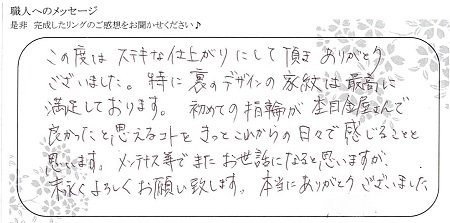 職人へのメッセージ
是非 完成したリングのご感想をお聞かせください♪
この度は ステキな仕上がりにして頂き ありがとう
ございました。特に 裏のデザインの 家紋は 最高に
満足しております。 初めての指輪が 杢目金屋さんで
良かったと思えるコトを きっとこれからの日々で 感じることと
思います。メンテナンス等でまたお世話になると思いますが、
末永くよろしくお願い致します。本当にありがとうございました